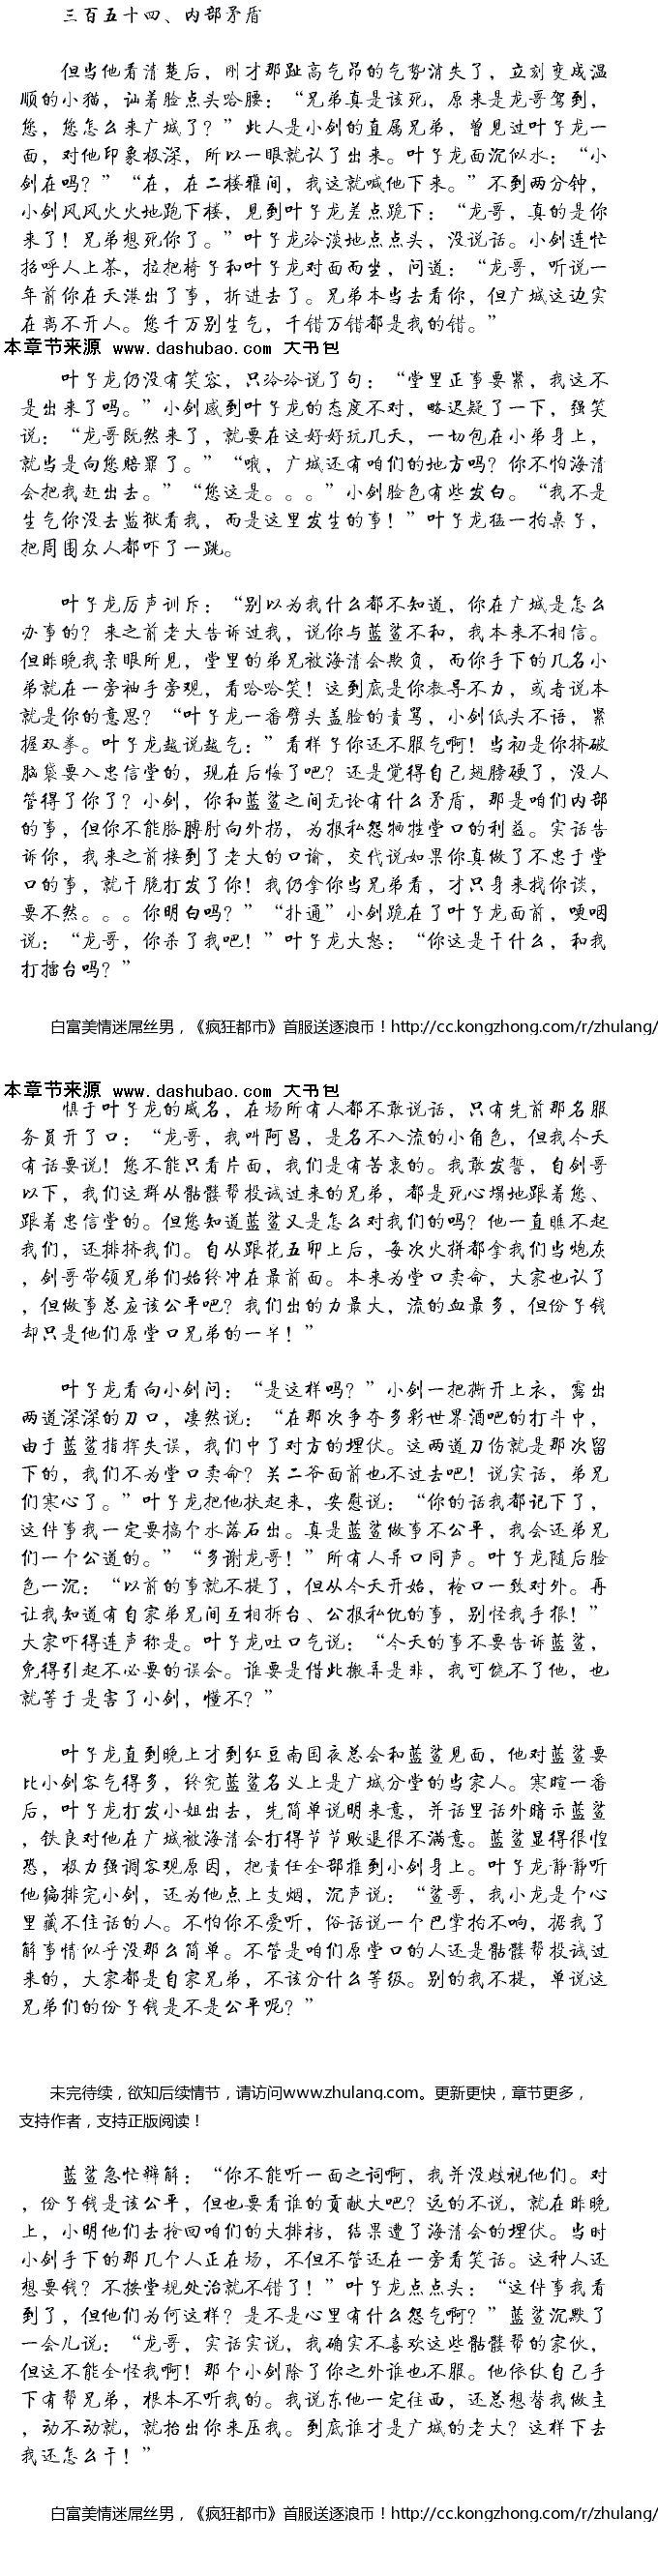 三百五十四、内部矛盾
但当他看清楚后，刚才那趾高气昂的气势消失了，立刻变成温
顺的小猫，讪着脸点头哈腰：“兄弟真是该死，原来是龙哥驾到，
您，您怎么来广城了？”此人是小剑的直属兄弟，曾见过叶子龙一
面，对他印象极深，所以一眼就认了出来。叶子龙面沉似水：“小
剑在吗？”“在，在二楼雅间，我这就喊他下来。”不到两分钟，
小剑风风火火地跑下楼，见到叶子龙差点跪下：“龙哥，真的是你
来了！兄弟想死你了。”叶子龙冷淡地点点头，没说话。小剑连忙
招呼人上茶，拉把椅子和叶子龙对面而坐，问道：“龙哥，听说一
年前你在天港出了事，折进去了。兄弟本当去看你，但广城这边实
在离不开人。您千万别生气，千错万错都是我的错。”
本章节来源 www.dashubao.com 大书包
叶子龙仍没有笑容，只冷冷说了句：“堂里正事要紧，我这不
是出来了吗。”小剑感到叶子龙的态度不对，略迟疑了一下，强笑
说：“龙哥既然来了，就要在这好好玩几天，一切包在小弟身上，
就当是向您赔罪了。”“哦，广城还有咱们的地方吗？你不怕海清
会把我赶出去。”“您这是。。。”小剑脸色有些发白。“我不是
生气你没去监狱看我，而是这里发生的事！”叶子龙猛一拍桌子，
把周围众人都吓了一跳。
叶子龙厉声训斥：“别以为我什么都不知道，你在广城是怎么
办事的？来之前老大告诉过我，说你与蓝鲨不和，我本来不相信。
但昨晚我亲眼所见，堂里的弟兄被海清会欺负，而你手下的几名小
弟就在一旁袖手旁观，看哈哈笑！这到底是你教导不力，或者说本
就是你的意思？“叶子龙一番劈头盖脸的责骂，小剑低头不语，紧
握双拳。叶子龙越说越气：”看样子你还不服气啊！当初是你挤破
脑袋要入忠信堂的，现在后悔了吧？还是觉得自己翅膀硬了，没人
管得了你了？小剑，你和蓝鲨之间无论有什么矛盾，那是咱们内部
的事，但你不能胳膊肘向外拐，为报私怨牺牲堂口的利益。实话告
诉你，我来之前接到了老大的口谕，交代说如果你真做了不忠于堂
口的事，就干脆打发了你！我仍拿你当兄弟看，才只身来找你谈，
要不然。。。你明白吗？”“扑通”小剑跪在了叶子龙面前，哽咽
说：“龙哥，你杀了我吧！”叶子龙大怒：“你这是干什么，和我
打擂台吗？”
白富美情迷屌丝男，《疯狂都市》首服送逐浪币！http://cc.kongzhong.com/r/zhulang/
本章节来源 www.dashubao.com 大书包
惧于叶子龙的威名，在场所有人都不敢说话，只有先前那名服
务员开了口：“龙哥，我叫阿昌，是名不入流的小角色，但我今天
有话要说！您不能只看片面，我们是有苦衷的。我敢发誓，自剑哥
以下，我们这群从骷髅帮投诚过来的兄弟，都是死心塌地跟着您、
跟着忠信堂的。但您知道蓝鲨又是怎么对我们的吗？他一直瞧不起
我们，还排挤我们。自从跟花五卯上后，每次火拼都拿我们当炮灰
，剑哥带领兄弟们始终冲在最前面。本来为堂口卖命，大家也认了
，但做事总应该公平吧？我们出的力最大，流的血最多，但份子钱
却只是他们原堂口兄弟的一半！”
叶子龙看向小剑问：“是这样吗？”小剑一把撕开上衣，露出
两道深深的刀口，凄然说：“在那次争夺多彩世界酒吧的打斗中，
由于蓝鲨指挥失误，我们中了对方的埋伏。这两道刀伤就是那次留
下的，我们不为堂口卖命？关二爷面前也不过去吧！说实话，弟兄
们寒心了。”叶子龙把他扶起来，安慰说：“你的话我都记下了，
这件事我一定要搞个水落石出。真是蓝鲨做事不公平，我会还弟兄
们一个公道的。”“多谢龙哥！”所有人异口同声。叶子龙随后脸
色一沉：“以前的事就不提了，但从今天开始，枪口一致对外。再
让我知道有自家弟兄间互相拆台、公报私仇的事，别怪我手狠！”
大家吓得连声称是。叶子龙吐口气说：“今天的事不要告诉蓝鲨，
免得引起不必要的误会。谁要是借此搬弄是非，我可饶不了他，也
就等于是害了小剑，懂不？”
叶子龙直到晚上才到红豆南国夜总会和蓝鲨见面，他对蓝鲨要
比小剑客气得多，终究蓝鲨名义上是广城分堂的当家人。寒暄一番
后，叶子龙打发小姐出去，先简单说明来意，并话里话外暗示蓝鲨
，铁良对他在广城被海清会打得节节败退很不满意。蓝鲨显得很惶
恐，极力强调客观原因，把责任全部推到小剑身上。叶子龙静静听
他编排完小剑，还为他点上支烟，沉声说：“鲨哥，我小龙是个心
里藏不住话的人。不怕你不爱听，俗话说一个巴掌拍不响，据我了
解事情似乎没那么简单。不管是咱们原堂口的人还是骷髅帮投诚过
来的，大家都是自家兄弟，不该分什么等级。别的我不提，单说这
兄弟们的份子钱是不是公平呢？”
未完待续，欲知后续情节，请访问www.zhulang.com。更新更快，章节更多，
支持作者，支持正版阅读！
蓝鲨急忙辩解：“你不能听一面之词啊，我并没歧视他们。对
，份子钱是该公平，但也要看谁的贡献大吧？远的不说，就在昨晚
上，小明他们去抢回咱们的大排档，结果遭了海清会的埋伏。当时
小剑手下的那几个人正在场，不但不管还在一旁看笑话。这种人还
想要钱？不按堂规处治就不错了！”叶子龙点点头：“这件事我看
到了，但他们为何这样？是不是心里有什么怨气啊？”蓝鲨沉默了
一会儿说：“龙哥，实话实说，我确实不喜欢这些骷髅帮的家伙，
但这不能全怪我啊！那个小剑除了你之外谁也不服。他依仗自己手
下有帮兄弟，根本不听我的。我说东他一定往西，还总想替我做主
，动不动就，就抬出你来压我。到底谁才是广城的老大？这样下去
我还怎么干！”
白富美情迷屌丝男，《疯狂都市》首服送逐浪币！http://cc.kongzhong.com/r/zhulang/